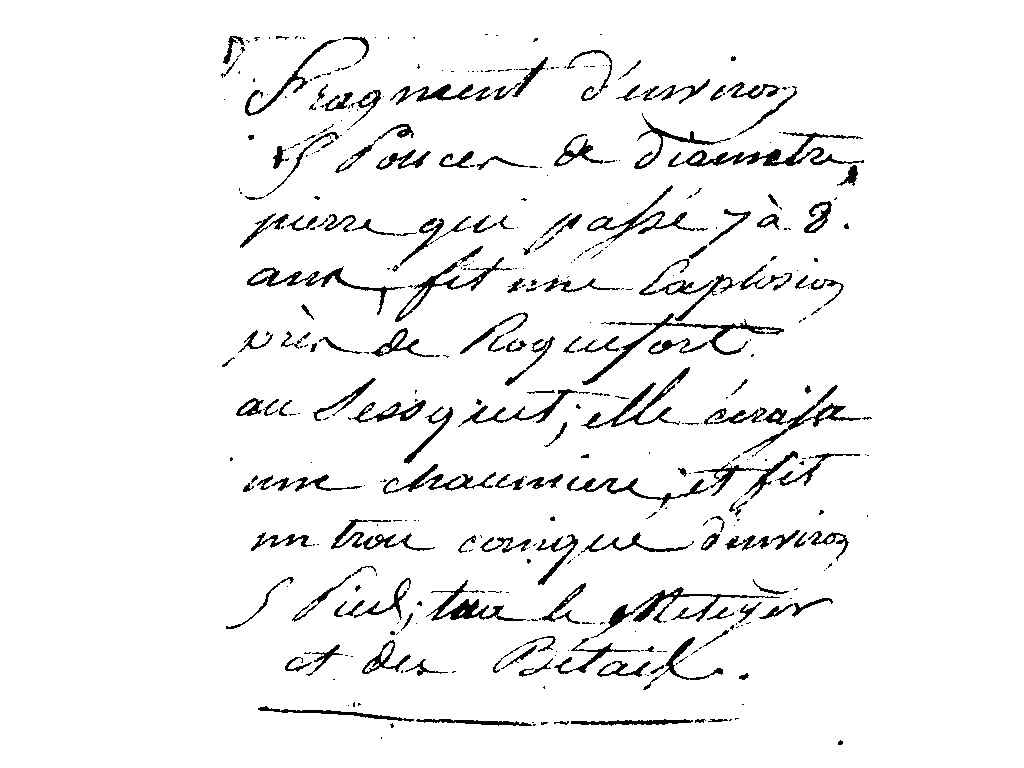 Fragment d'environ
15 Pouces de diametre,
pierre qui passé 7 à 8.
ans, fit une Explosion
près de Roquefort
au Sessquet; elle écrasa
une chaumiere, et fit
un trou conique d'environ
5 Pieds; tua le Meteyer
et des Bétail.